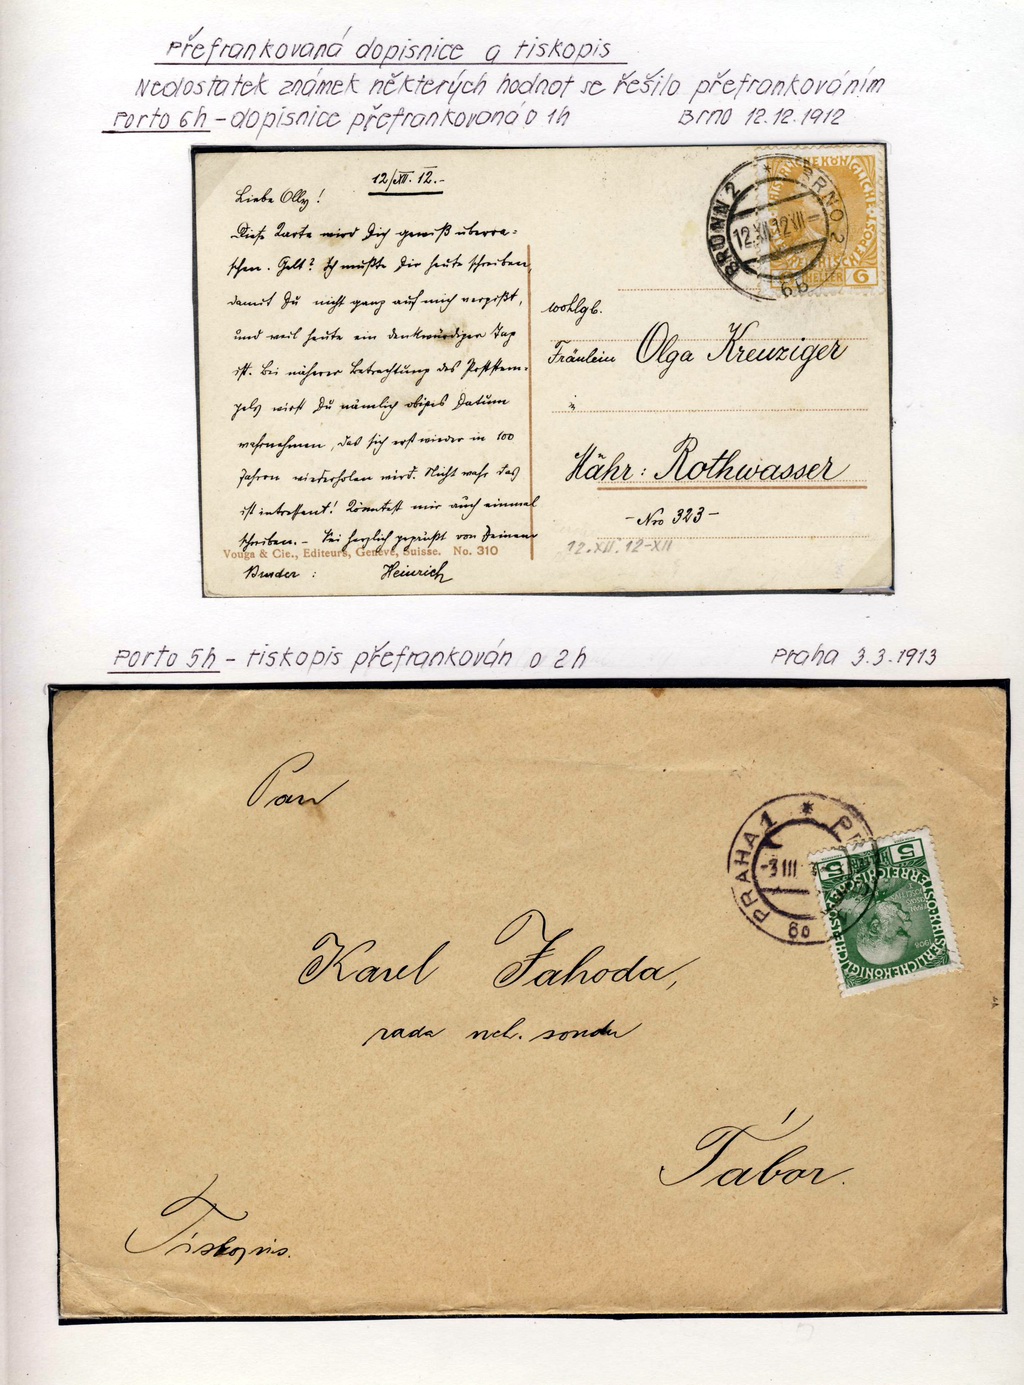 Přefrankovaná dopisnice a tiskopis
Nedostatek známek některých hodnot se řešilo přefrankováním
Porto 6h – dopisnice přefrankovaná o 1h Brno 12.12.1912
12/XII. 12.-
Liebe Olly!
Diese Karte wird Dich gewiß überra=
schen. Gelt? Ich mußte Dir heute schreiben,
damit Du nicht ganz auf mich vergißt,
und weil heute ein denkwürdiger Tag
ist. Bei näherer Betrachtung des Poststem-
pels wirst Du nämlich obiges Datum
wahrnehmen, das sich erst wieder in 100
Jahren wiederholen wird. Nicht wahr das
ist intressant! Könntest mir auch einmal
schreiben. – Sei herzlich geküßt von Deinem
Vouga & Cie., Editeurs, Genève, Suisse. No. 310
Bruder : Heinrich
BRÜNN 2 * BRNO 2
12.XII.12 VII-
6b
HELLER 6
wohlgb.
Fräulein Olga Kreuziger
in
Mähr: Rothwasser
– Nro 323 –
12.XII.12-XII
Porto 5h – tiskopis přefrankován o 2h Praha 3.3.1913
Pan
PRAHA 1 *
-3 III
8a
5 5
1908
Karel Jahoda,
rada
Tábor.
Tiskopis.